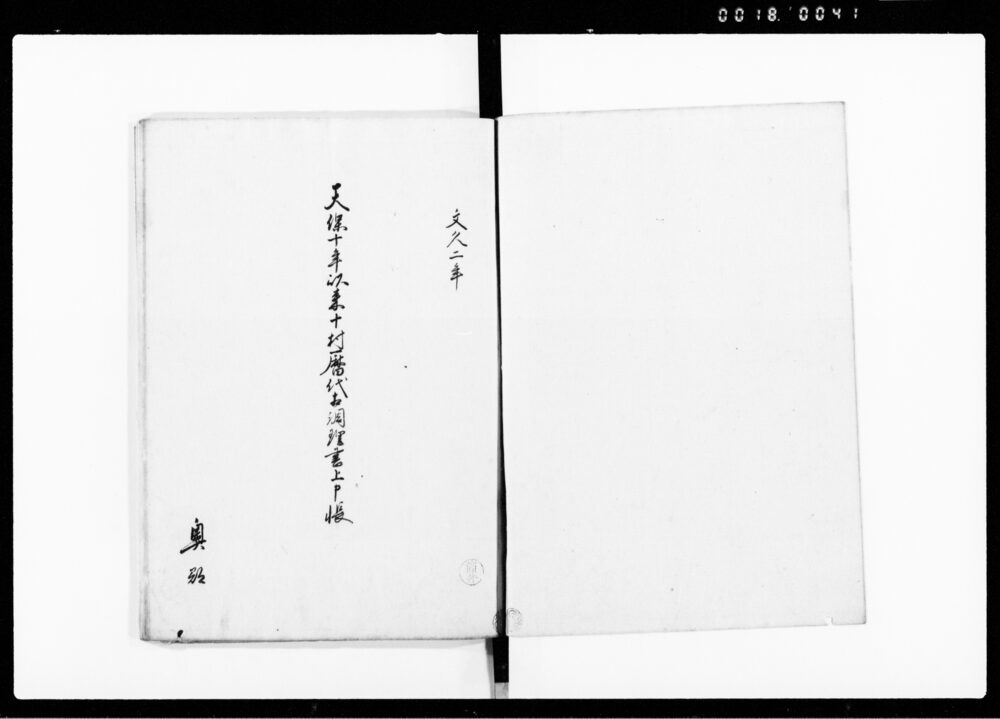 0018 0041
文久二年
天保十年以来十村暦代相調理書上申帳
奥郡